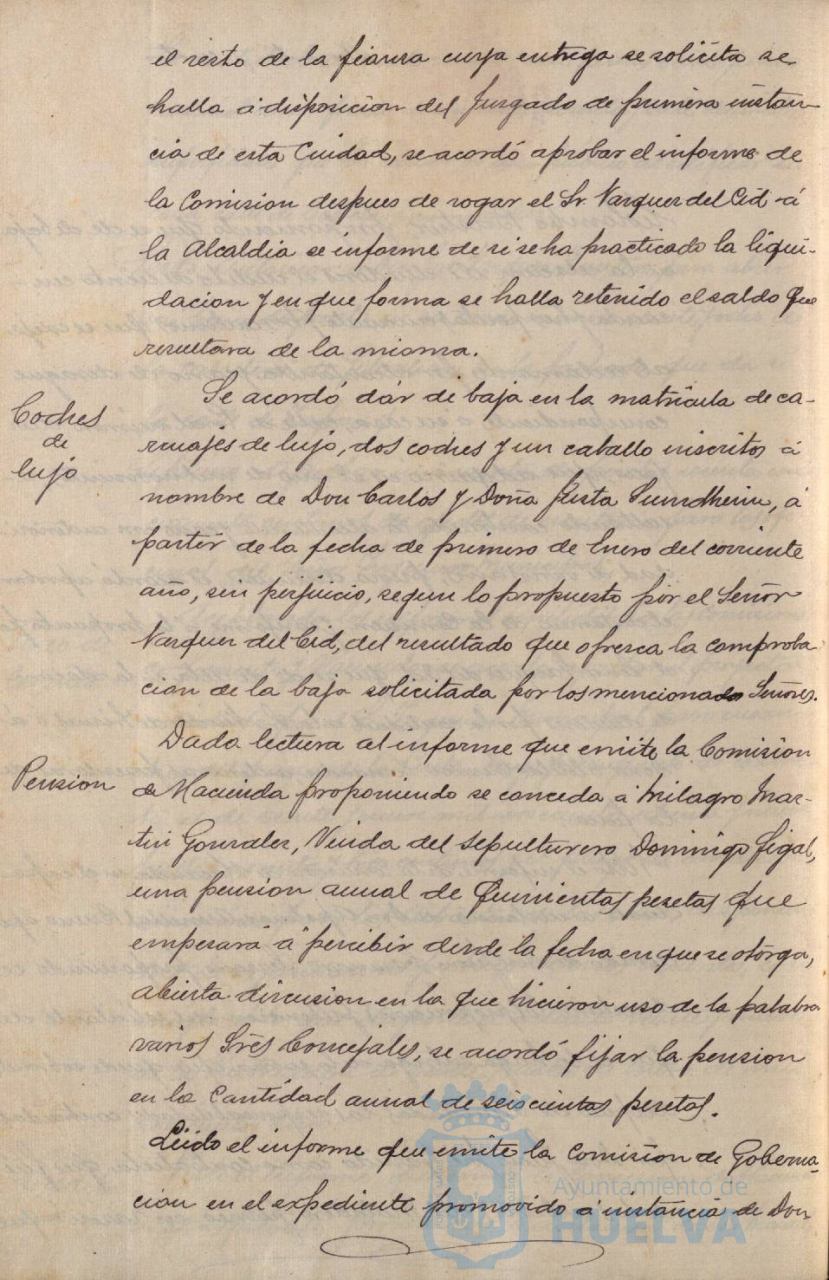 el resto de la fianza cuya entrega se solicita se
halla á disposicion del Juzgado de primera instan-
cia de esta Ciudad, se acordó aprobar el informe de
la Comision despues de rogar el Sr. Vazquez del Cid á
la Alcaldia se informe de si se ha practicado la liqui-
dacion y en que forma se halla retenido el saldo que
resultara de la misma.
Coches
de
lujo
Se acordó dár de baja en la matricula de ca-
rruajes de lujo, dos coches y un caballo inscritos á
nombre de Don Carlos y Doña Justa Sundheim, á
partir de la fecha de primero de Enero del corriente
año, sin perjuicio, segun lo propuesto por el Señor
Vazquez del Cid, del resultado que ofrezca la comproba
cion de la baja solicitada por los mencionados Señores.
Pension
Dada lectura al informe que emite la Comision
de Hacienda proponiendo se conceda á Milagro Mar-
tin Gonzalez, Viuda del sepulturero Domingo Figal,
una pension anual de Quinientas pesetas que
empezará á percibir desde la fecha en que se otorga,
abierta discusion en la que hicieron uso de la palabra
varios Sres Concejales, se acordó fijar la pension
en la cantidad anual de seiscientas pesetas.
Leido el informe que emite la Comision de Goberna-
cion en el expediente promovido á instancia de Don
Ayuntamiento de
HUELVA